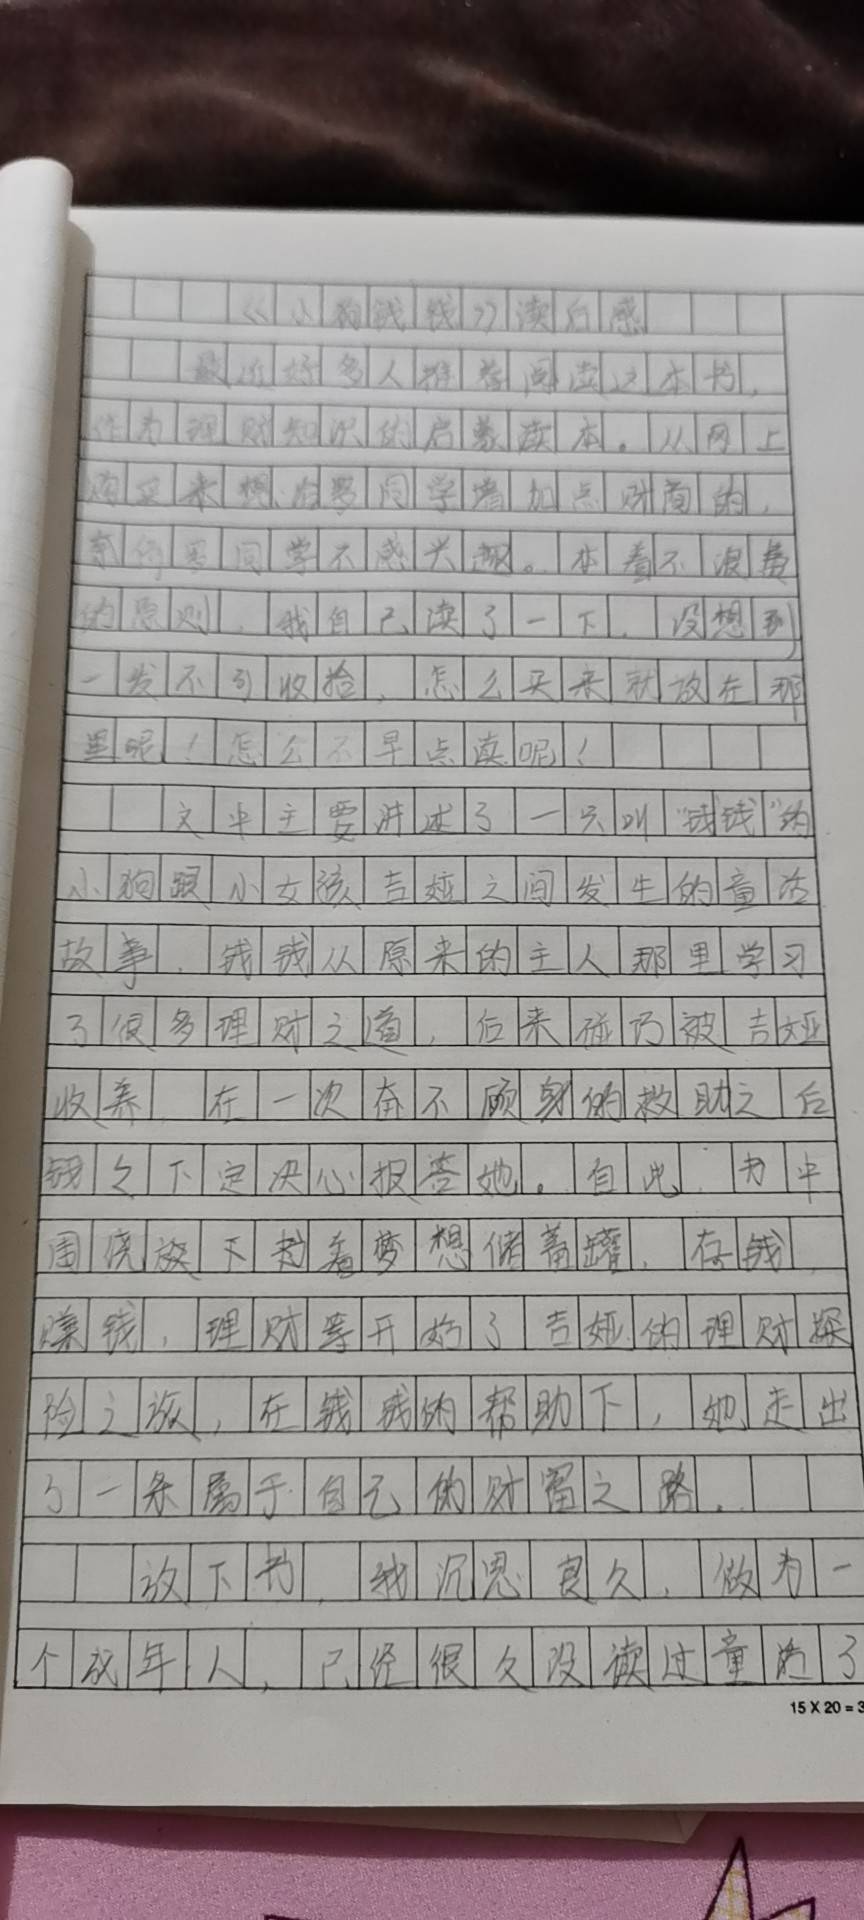 《小狗钱钱》读后感
最近好多人推荐阅读这本书，
作为理财知识的启蒙读本。从网上
购买来想给男同学增加点财商的，
奈何男同学不感兴趣。本着不浪费
的原则，我自己读了一下，没想到
一发不可收拾，怎么买来就放在那
里呢！怎么不早点读呢！
文中主要讲述了一只叫“钱钱”的
小狗跟小女孩吉娅之间发生的童话
故事，钱钱从原来的主人那里学习
了很多理财之道，后来碰巧被吉娅
收养，在一次奋不顾身的救助之后
钱钱下定决心报答她。自此，书中
围绕放下着梦想储蓄罐，存钱，
赚钱，理财等开始了吉娅的理财探
险之旅，在钱钱的帮助下，她走出
了一条属于自己的财富之路。
放下书，我沉思良久，做为一
个成年人，已经很久没读过童话了
15 X 20 = 3